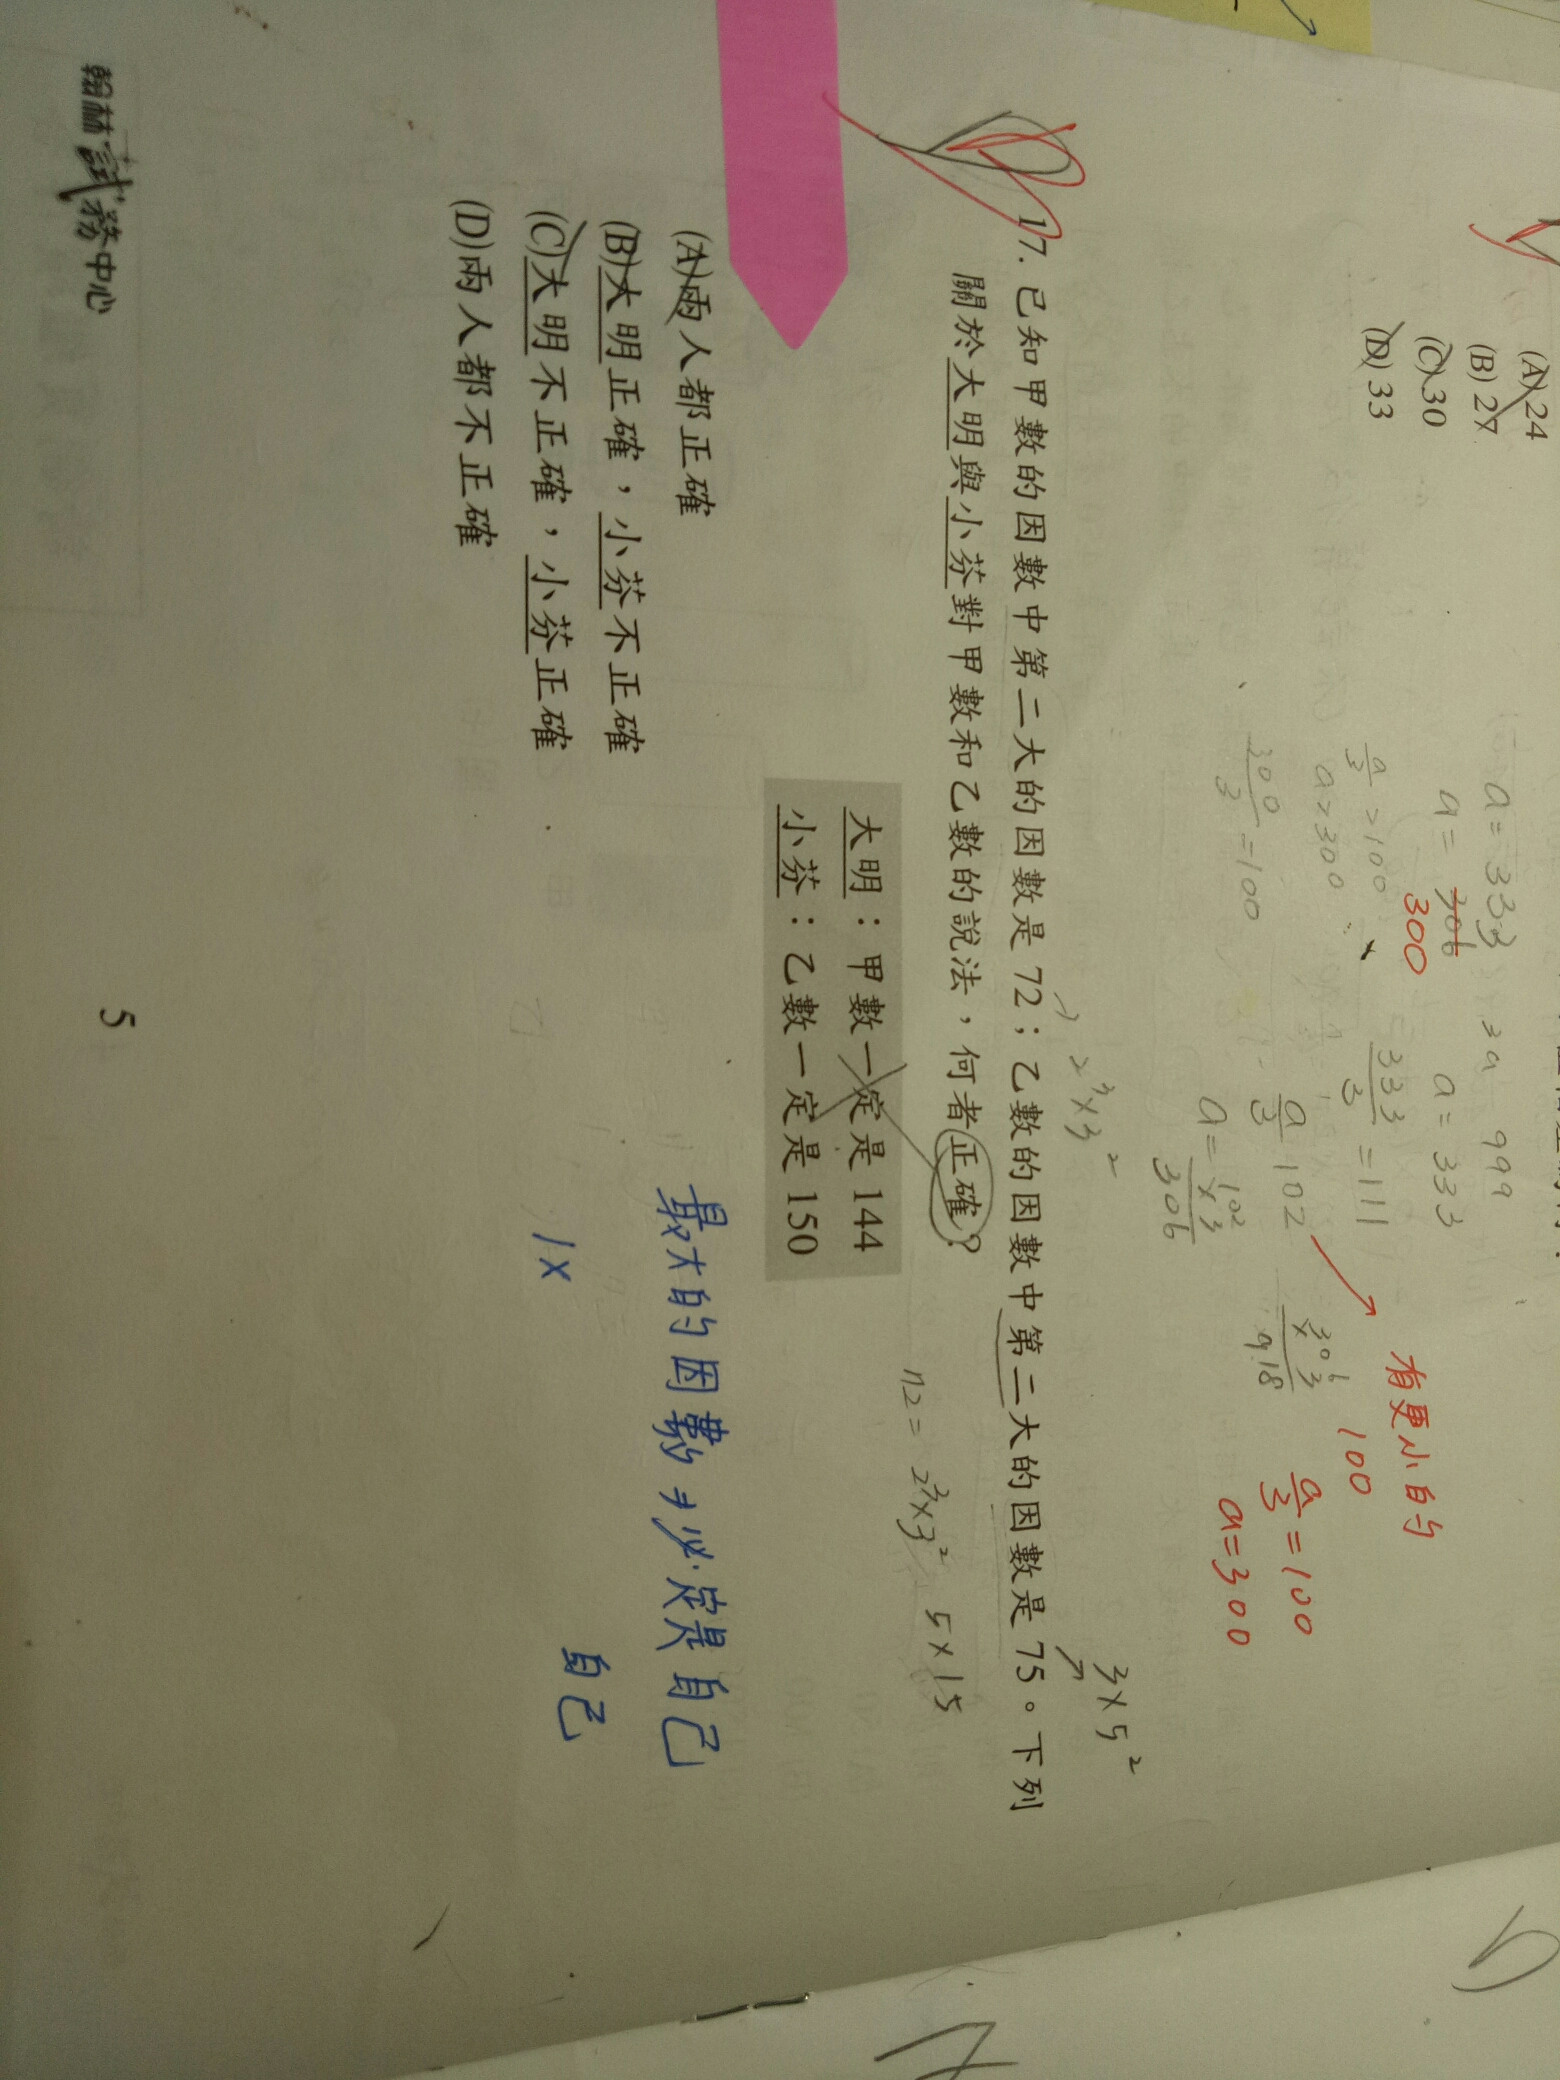 (A) 24
(B) 27
(C) 30
(D) 33
a = 333
a = 306
300
a/3 > 100
a > 300
300/3 = 100
3a 999
a = 333
333/3 = 111
a/3 102
a = 102
× 3
306
306
× 3
918
有更小的
100
a/3 = 100
a = 300
2³×3²
3×5²
17. 已知甲數的因數中第二大的因數是 72；乙數的因數中第二大的因數是 75。下列
關於大明與小芬對甲數和乙數的說法，何者正確？
72 = 2³×3² 5×15
大明：甲數一定是 144
小芬：乙數一定是 150
(A)兩人都正確
(B)大明正確，小芬不正確
(C)大明不正確，小芬正確
(D)兩人都不正確
最大的因數必定是自己
1×
自己
翰林試務中心
5